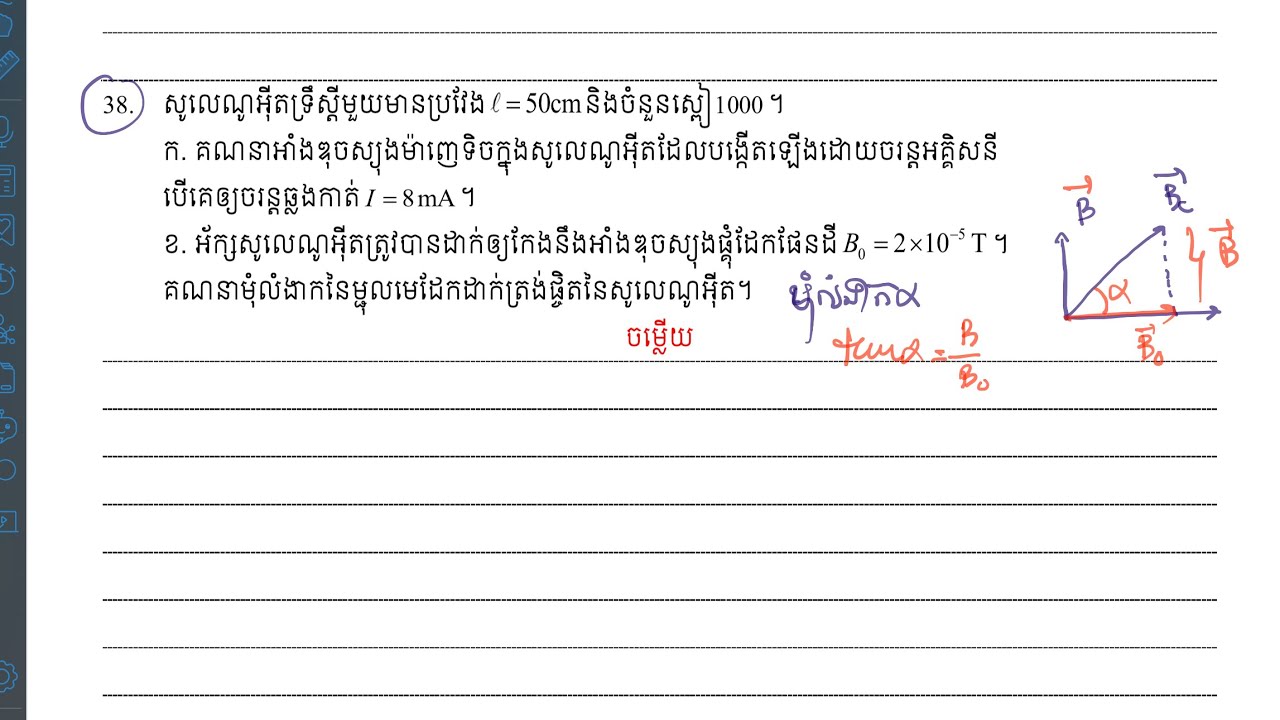 38. សូលេណូអ៊ីតទ្រឹស្តីមួយមានប្រវែង ℓ = 50cm និងចំនួនស្ពៀ 1000 ។
ក. គណនាអាំងឌុចស្យុងម៉ាញេទិចក្នុងសូលេណូអ៊ីតដែលបង្កើតឡើងដោយចរន្តអគ្គិសនី
បើគេឲ្យចរន្តឆ្លងកាត់ I = 8 mA ។
ខ. អ័ក្សសូលេណូអ៊ីតត្រូវបានដាក់ឲ្យកែងនឹងអាំងឌុចស្យុងផ្គុំដែកផែនដី B₀ = 2×10⁻⁵ T ។
គណនាមុំលំងាកនៃម្ជុលមេដែកដាក់ត្រង់ផ្ចិតនៃសូលេណូអ៊ីត។
មុំលំងាក α
ចម្លើយ
tan α = B/B₀
B⃗
B⃗c
B⃗
α
B⃗₀